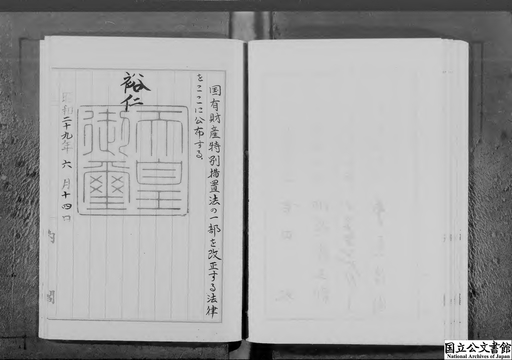 国有財産特別措置法の一部を改正する法律
をここに公布する
裕仁
天皇
御璽
昭和二十九年六月十四日
内閣
国立公文書館
National Archives of Japan